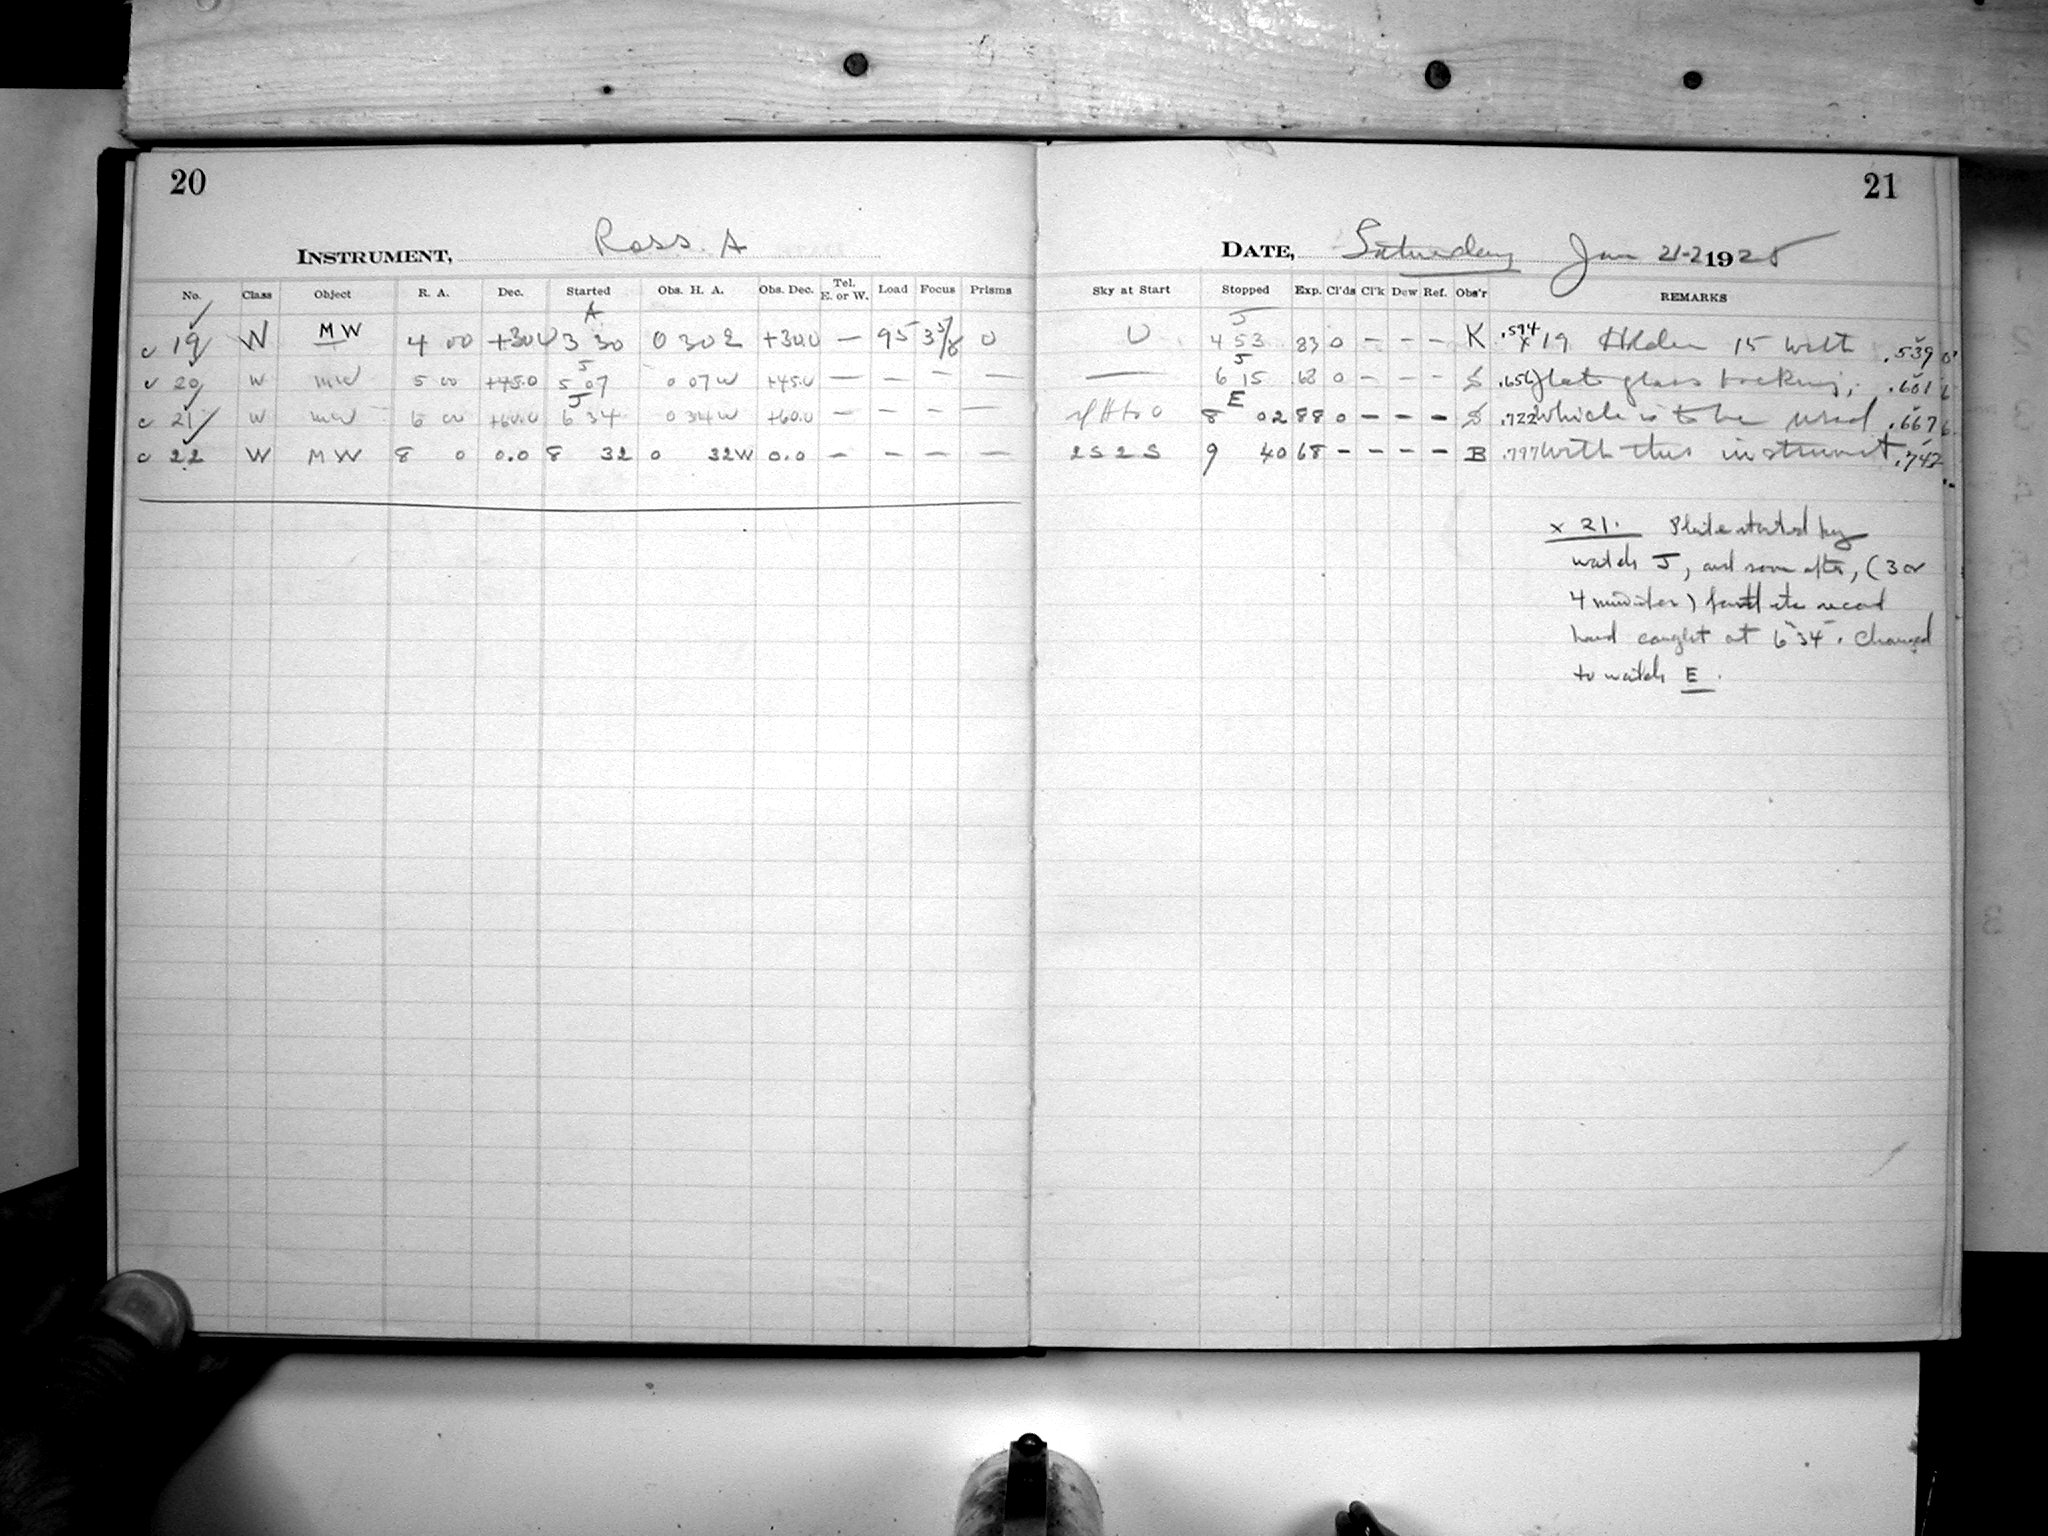 20
21
INSTRUMENT, Ross A
DATE, Saturday Jan 21-2 1928
No. Class Object R. A. Dec. Started Obs. H. A. Obs. Dec. Tel. E. or W. Load Focus Prisms Sky at Start Stopped Exp. Cl'ds Cl'k Dew Ref. Obs'r REMARKS
A J
19 W MW 4 00 +30.0 3 30 0 30 +30.0 — 95 0 0 4 53 83 0 – – – K .594 x 19 Holder 15 with .539
J J
20 W MW 5 00 +45.0 5 07 0 07 W +45.0 — — – — — 6 15 68 0 – – – S .656 plate glass backing, .601
J E
21 W MW 6 00 +60.0 6 34 0 34 W +60.0 – – – — 8 02 88 0 – – – S .722 which is to be used .667
22 W MW 8 0 0.0 8 32 0 32W 0.0 – – – – — 2 S 2 S 9 40 68 – – – – B .797 with this instrument .742
x 21. Plate started by
watch J, and soon after, (3 or
4 minutes) found its second
hand caught at 6 34. Changed
to watch E.